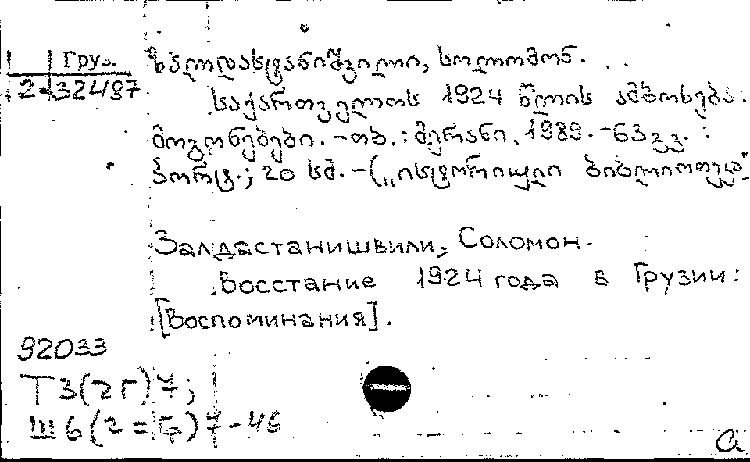 Груз.
2-32487
ზალდასტანიშვილი, სოლომონ. . .
საქართველოს 1924 წლის ამბოხება:
მოგონებები. - თბ.: მერანი, 1989. - 63 გვ. :
პორტ.; 20 სმ. - („ისტორიული ბიბლიოთეკა"
Залдастанишвили, Соломон.
Восстание 1924 года в Грузии:
[Воспоминания].
92033
Т3(2Г)7;
Ш6(2=Г)7-46
а